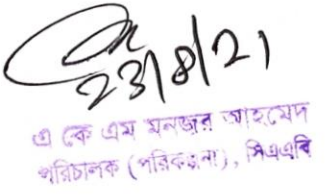 23/8/21
এ কে এম মনজুর আহমেদ
পরিচালক (পরিকল্পনা), সিএএবি